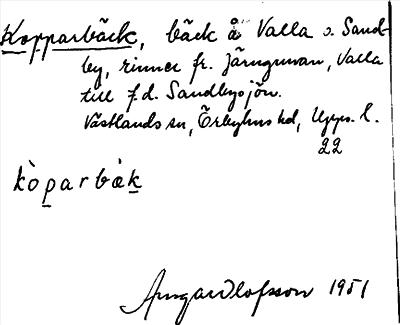 Kopparbäck, bäck å Valla o. Sand-
by, rinner fr. Järngruvan, Valla
till f.d. Sandbysjön.
Västlands sn, Örbyhus hd, Upps. l.
22
kòparbæk
Olofsson 1951